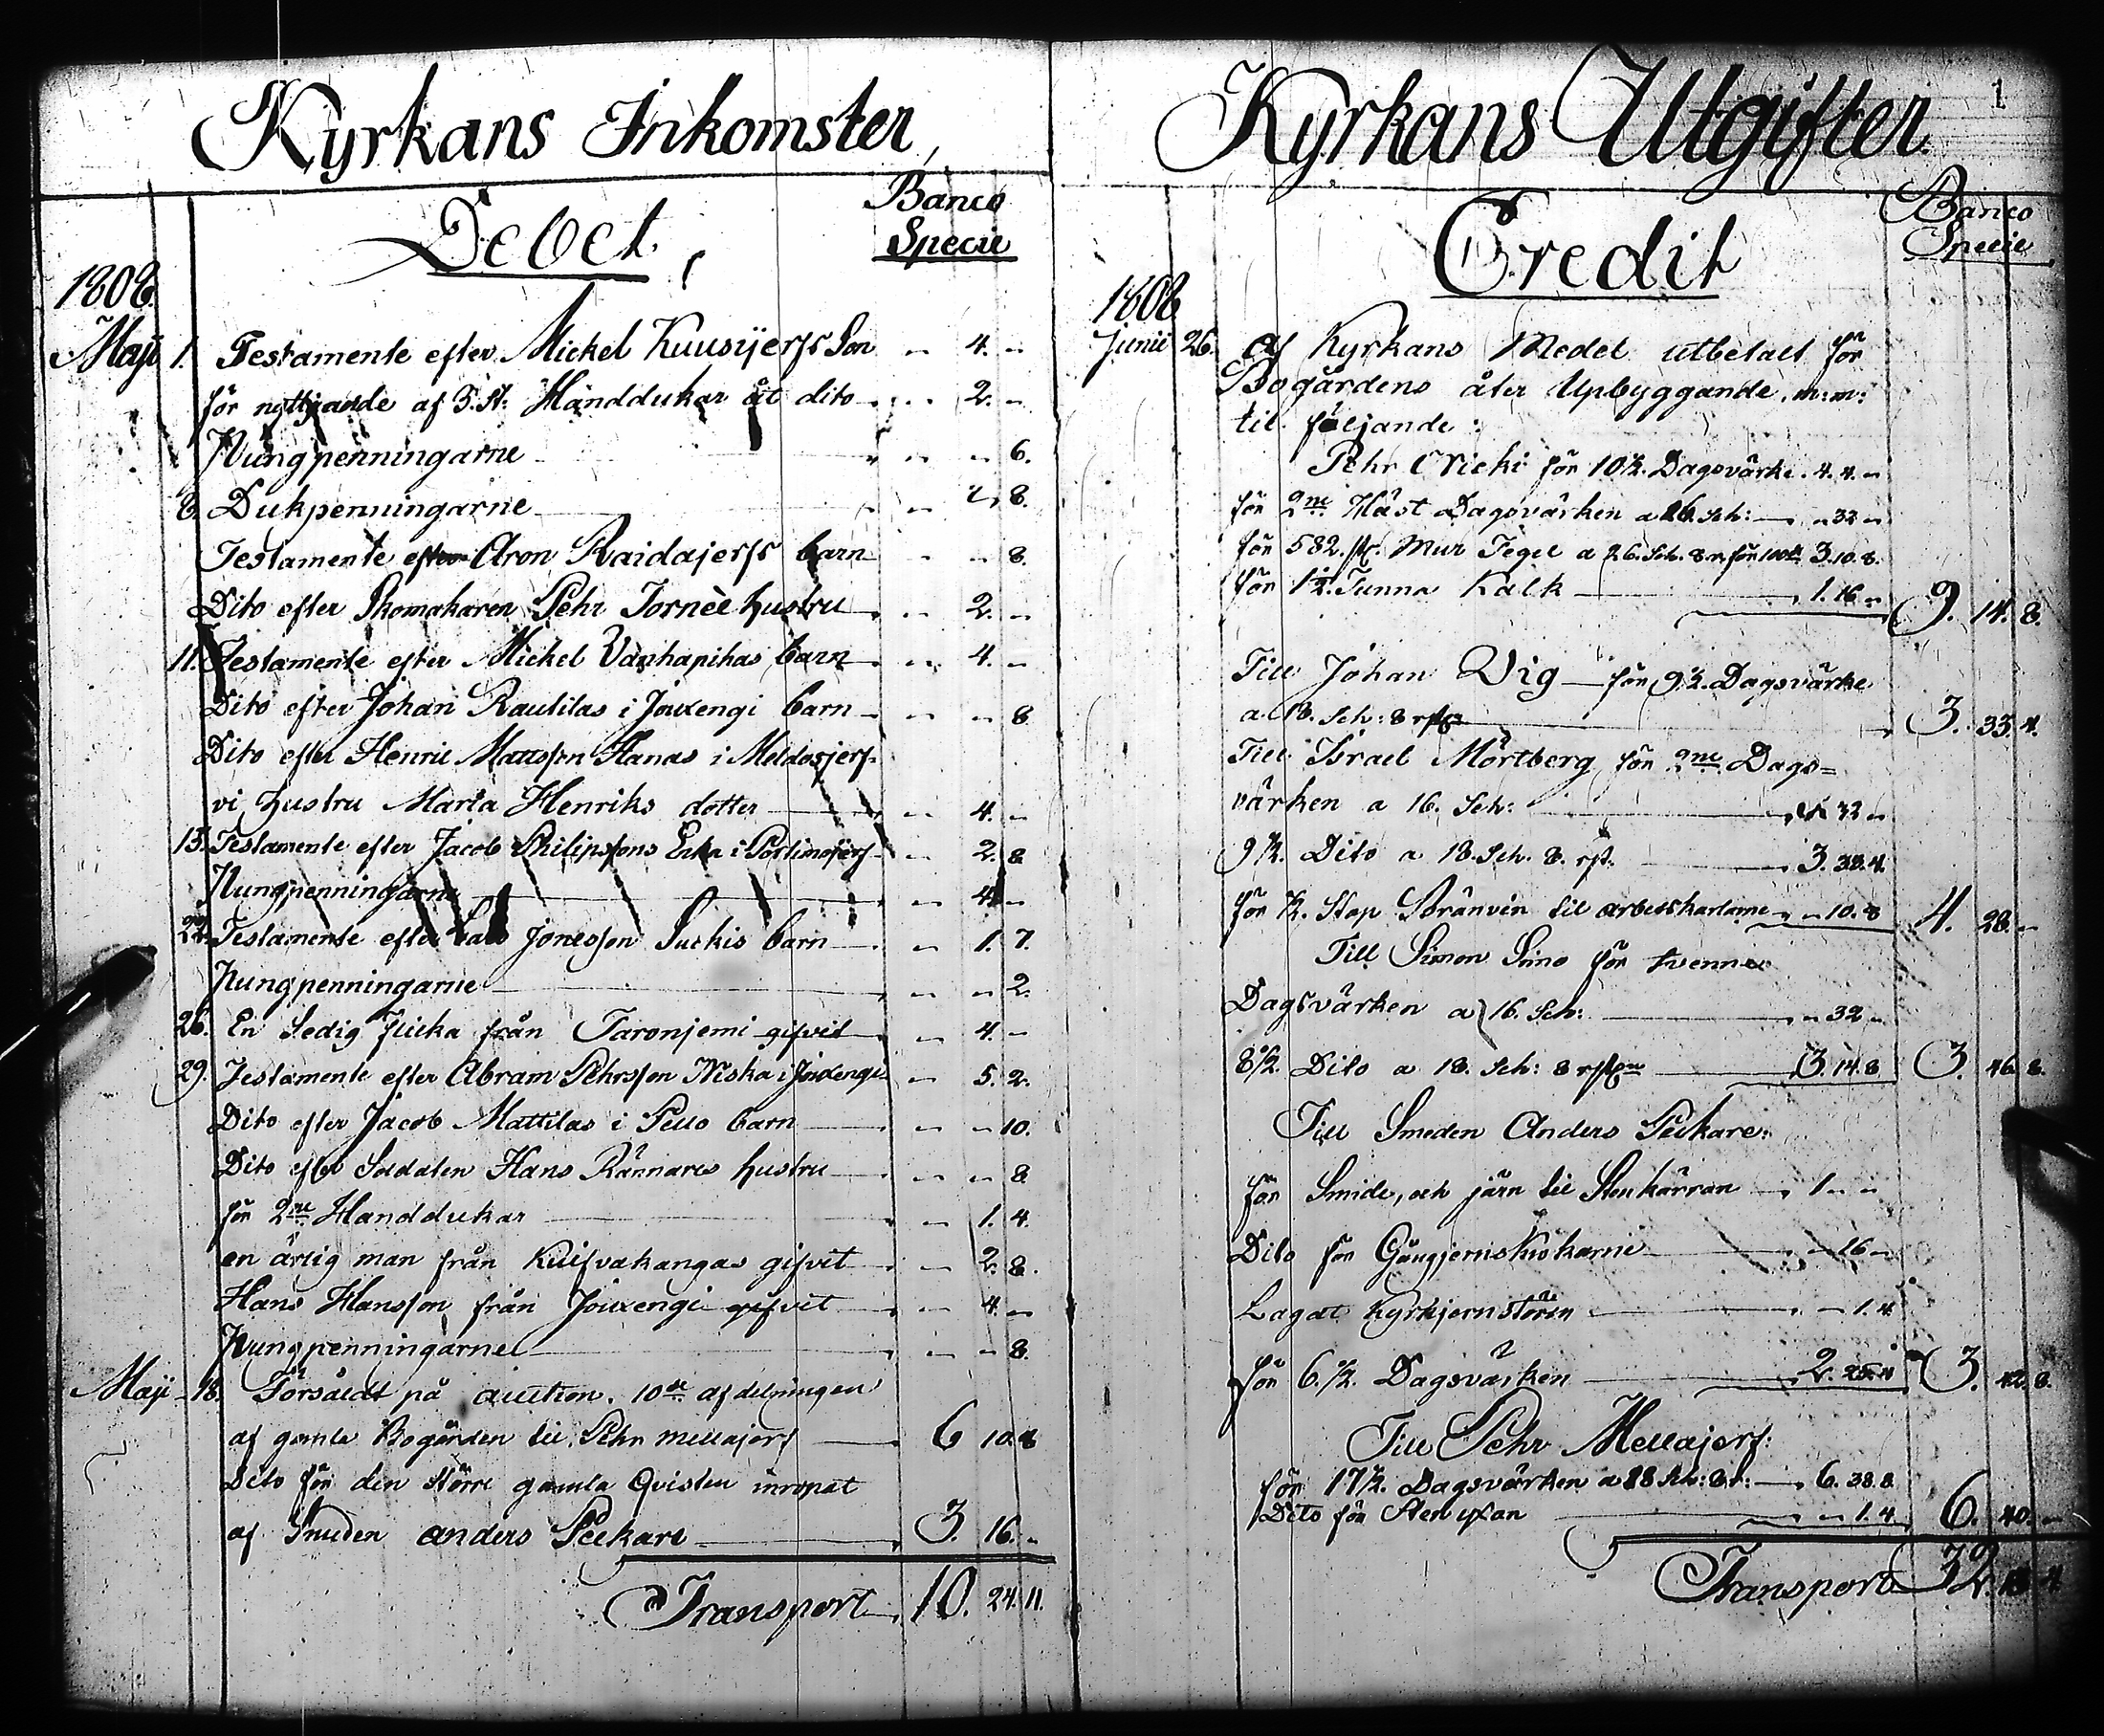 Kyrkans Inkomster,
Debet,
Banco
Specie
1808.
Maji 1. Testamente efter Mickel Kuusijerfs Son " 4. "
för nyttjande af 3. st: Handdukar åt dito " 2. "
Pungpenningarne " " 6.
8. Dukpenningarne 8.
Testamente efter Aron Raidajerfs barn " " 8.
Dito efter Skomakaren Pehr Tornèe hustru " 2. "
11. Testamente efter Mickel Vanhapihas barn " 4. "
Dito efter Johan Rautilas i Jouxengi barn " " 8
Dito efter Henric Mattsson Hanas i Meldosjerf-
vi hustru Maria Henriks dotter " 4. "
15. Testamente efter Jacob Philipssons Enka i Portimojerf " 2. 8
Pungpenningarne " 4 "
22. Testamente efter Lars Jonesson Suckis barn " 1. 7.
Pungpenningarne " " 2.
26. En Ledig Flicka från Taronjemi gifvit " 4. "
29. Testamente efter Abram Pehrsson Niska i Jouxengi " 5. 2.
Dito efter Jacob Mattilas i Pello barn " " 10.
Dito efter Soldaten Hans Rännares hustru " " 8
för 2ne Handdukar " 1. 4.
en ärlig man från Kuifvakangas gifvit " 2. 8.
Hans Hansson från Jouxengi gifvit " 4. "
Pungpenningarne " " 8.
Maji 18. Försåldt på auction. 10de afdelningen
af gamla Bogården til Pehr Mellajerf 6 10. 8
Dito för den större gamla Qvisten inropat
af Smeden Anders Peckare 3. 16. "
Transport 10. 24. 11.
Kyrkans Utgifter
1
Credit
Banco
Specie
1808
Junii 26. Af Kyrkans Medel utbetalt för
Bogårdens åter Upbyggande. m:m:
til följande:
Pehr Nicki för 10½. Dagsvärke. 4. 4. "
för 2ne Häst Dagsvärken a 16. Sch: " 32 "
för 582. st. Mur Tegel a 26. Sch. 8 r. för 100de 3. 10. 8.
för 1½. Tunna Kalk 1. 16 " 9. 14. 8.
Till Johan Vig för 9½. Dagsvärke
a. 18. Sch: 8 rst: 3. 33. 4.
Till Israel Mörtberg för 2ne Dags=
värken a 16. Sch: 32 "
9½. Dito a 18. Sch. 8. rst. 3. 33. 4.
för ½. Stop Bränvin til arbetskarlarne " 10. 8 4. 28. "
Till Simon Simo för tvenne
Dagsvärken a 16. Sch: " 32 "
8½. Dito a 18. Sch: 8 rst 3. 14. 8 3. 46. 8.
Till Smeden Anders Peckare:
för Smide, och järn til Stenkärran 1. " "
Dito för Gångjernskrokarne " 16 "
Lagat Kyrkjernstören " 1. 4
för 6.½. Dagsvärken 2. 25. 4 3. 42. 8.
Till Pehr Mellajerf:
för 17½. Dagsvärken a 18 Sch: 8 r: 6. 38. 8
Dito för Stenyxan " 1. 4. 6. 40. "
Transport 32.